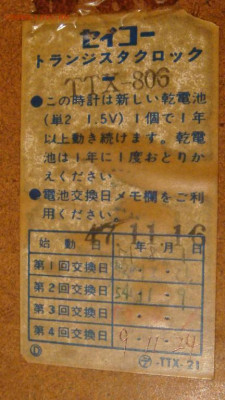 セイコー
トランジスタクロック
TTX-806
●この時計は新しい乾電池
(単2 1.5V)1個で1年
以上動き続けます。乾電
池は1年に1度おとりか
えください。
●電池交換日メモ欄をご利
用ください。
47.11.16
始動日 年・月・日
第1回交換日
第2回交換日 54
第3回交換日
第4回交換日 9-11-24
-TTX-21